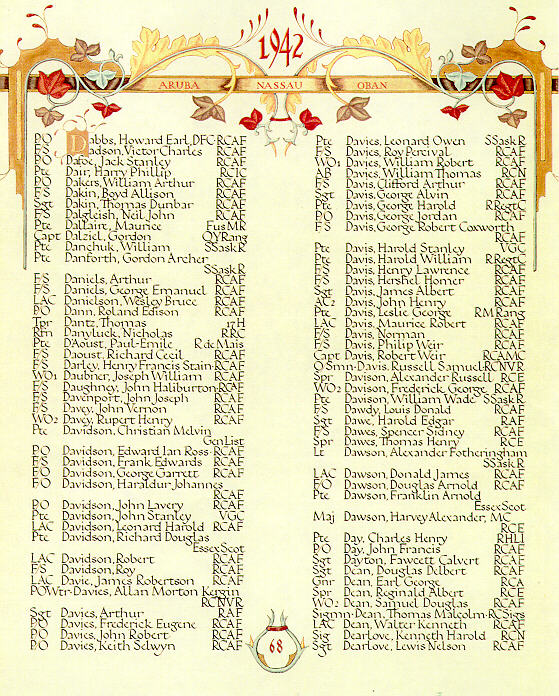 1942
ARUBA NASSAU OBAN
P.O Dabbs, Howard Earl, DFC·RCAF
F/S Dadson, Victor Charles RCAF
P.O Dafoe, Jack Stanley RCAF
Pte Dair, Harry Phillip RCIC
P.O Dakers, William Arthur RCAF
F/S Dakin, Boyd Allison RCAF
Sgt Dakin, Thomas Dunbar RCAF
F/S Dalgleish, Neil John RCAF
Pte Dallaire, Maurice Fus MR
Capt Dalziel, Gordon QYRang
Pte Danchuk, William SSaskR
Pte Danforth, Gordon Archer
SSaskR
F/S Daniels, Arthur RCAF
F/S Daniels, George Emanuel RCAF
LAC Danielson, Wesley Bruce RCAF
P.O Dann, Roland Edison RCAF
Tpr Dantz, Thomas 17H
Rfn Danyluck, Nicholas RRC
Pte D'Aoust, Paul-Emile R de Mais
F/S Daoust, Richard Cecil RCAF
F/S Darley, Henry Francis Stain·RCAF
WO1 Daubner, Joseph William RCAF
F/S Daughney, John Haliburton RCAF
F/S Davenport, John Joseph RCAF
F/S Davey, John Vernon RCAF
WO2 Davey, Rupert Henry RCAF
Pte Davidson, Christian Melvin
Gen List
P.O Davidson, Edward Ian Ross·RCAF
F/S Davidson, Frank Edwards RCAF
F/O Davidson, George Garrett RCAF
F/O Davidson, Haraldur Johannes
RCAF
P.O Davidson, John Lavery RCAF
Pte Davidson, John Stanley VGC
LAC Davidson, Leonard Harold RCAF
Pte Davidson, Richard Douglas
Essex Scot
LAC Davidson, Robert RCAF
F/S Davidson, Roy RCAF
LAC Davie, James Robertson RCAF
POWtr·Davies, Allan Morton Kergin
RCNVR
Sgt Davies, Arthur RAF
P.O Davies, Frederick Eugene RCAF
P.O Davies, John Robert RCAF
P.O Davies, Keith Selwyn RCAF
Pte Davies, Leonard Owen SSaskR
F/S Davies, Roy Percival RCAF
WO1 Davies, William Robert RCAF
AB Davies, William Thomas RCN
F/S Davis, Clifford Arthur RCAF
Sgt Davis, George Alvin RCAF
Pte Davis, George Harold RRegtC
P.O Davis, George Jordan RCAF
F/S Davis, George Robert Coxworth
RCAF
Pte Davis, Harold Stanley VGC
Pte Davis, Harold William RRegtC
F/S Davis, Henry Lawrence RCAF
F/S Davis, Hershel Homer RCAF
Sgt Davis, James Albert RCAF
AC2 Davis, John Henry RCAF
Pte Davis, Leslie George RM Rang
LAC Davis, Maurice Robert RCAF
F/S Davis, Norman RCAF
F/S Davis, Philip Weir RCAF
Capt Davis, Robert Weir RCAMC
OSmn·Davis, Russell Samuel·RCNVR
Spr Davison, Alexander Russell RCE
WO2 Davison, Frederick George RCAF
Pte Davison, William Wade SSaskR
F/S Dawdy, Louis Donald RCAF
Sgt Dawe, Harold Edgar RAF
F/S Dawes, Spencer Sidney RCAF
Spr Dawes, Thomas Henry RCE
Lt Dawson, Alexander Fotheringham
SSaskR
LAC Dawson, Donald James RCAF
F/O Dawson, Douglas Arnold RCAF
Pte Dawson, Franklin Arnold
Essex Scot
Maj Dawson, Harvey Alexander, MC
RCE
Pte Day, Charles Henry RHLI
P.O Day, John Francis RCAF
Sgt Dayton, Fawcett Calvert RCAF
Sgt Dean, Douglas Delbert RCAF
Gnr Dean, Earl George RCA
Spr Dean, Reginald Albert RCE
WO2 Dean, Samuel Douglas RCAF
Sigmn·Dean, Thomas Malcolm·RCSigs
LAC Dean, Walter Kenneth RCAF
Sig Dearlove, Kenneth Harold RCN
Sgt Dearlove, Lewis Nelson RCAF
68